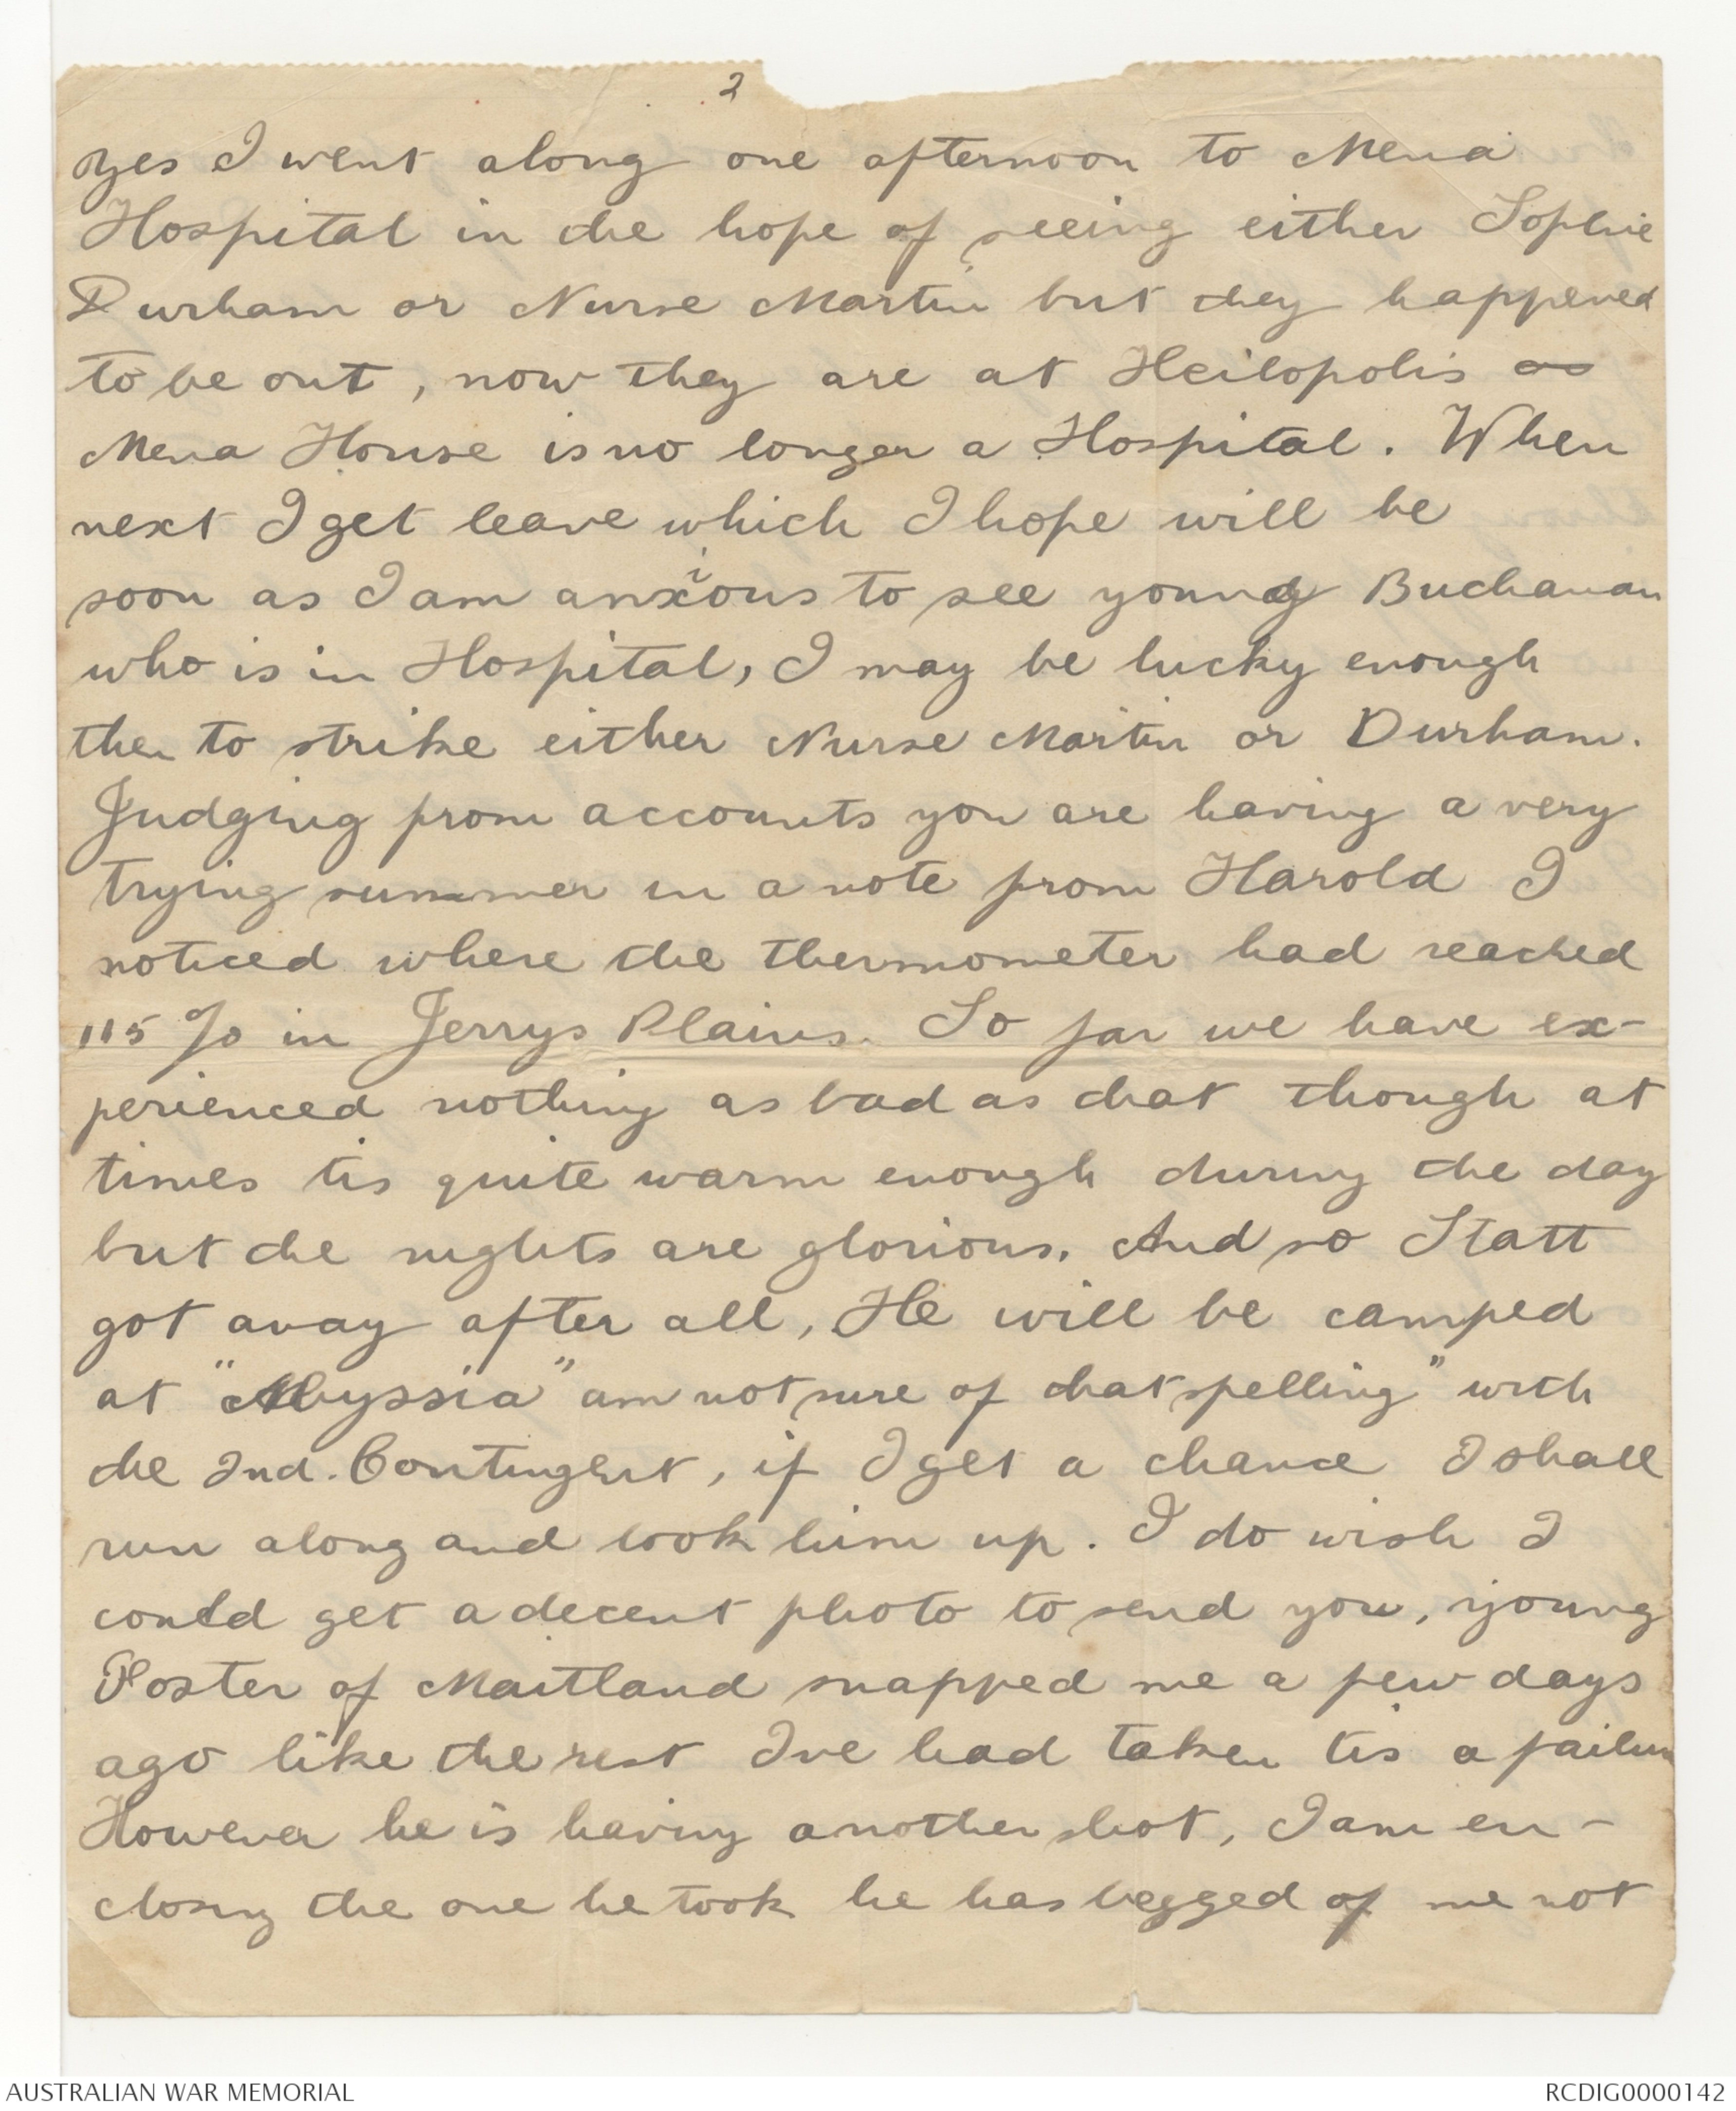 2
Yes I went along one afternoon to Mena
Hospital in the hope of seeing either Sophie
Durham or Nurse Martin but they happened
to be out, now they are at Heilopolis as
Mena House is no longer a Hospital. When
next I get leave which I hope will be
soon as I am anxious to see young Buchanan
who is in Hospital, I may be lucky enough
then to strike either Nurse Martin or Durham.
Judging from accounts you are having a very
trying summer in a note from Harold I
noticed where the thermometer had reached
115 % in Jerrys Plains. So far we have ex-
perienced nothing as bad as that though at
times tis quite warm enough during the day
but the nights are glorious. And so Statt
got away after all, He will be camped
at "Abyssia" am not sure of that spelling" with
the 2nd. Contingent, if I get a chance I shall
run along and look him up. I do wish I
could get a decent photo to send you, young
Foster of Maitland snapped me a few days
ago like the rest Ive had taken tis a failure
However he is having another shot, I am en-
closing the one he took he has begged of me not
AUSTRALIAN WAR MEMORIAL
RCDIG0000142